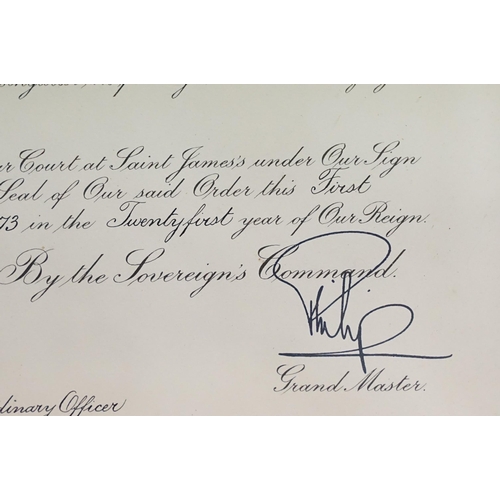 Court at Saint James's under Our Sign
Seal of Our said Order this First
73 in the Twentyfirst year of Our Reign.
By the Sovereign's Command.
Philip
Grand Master.
dinary Officer